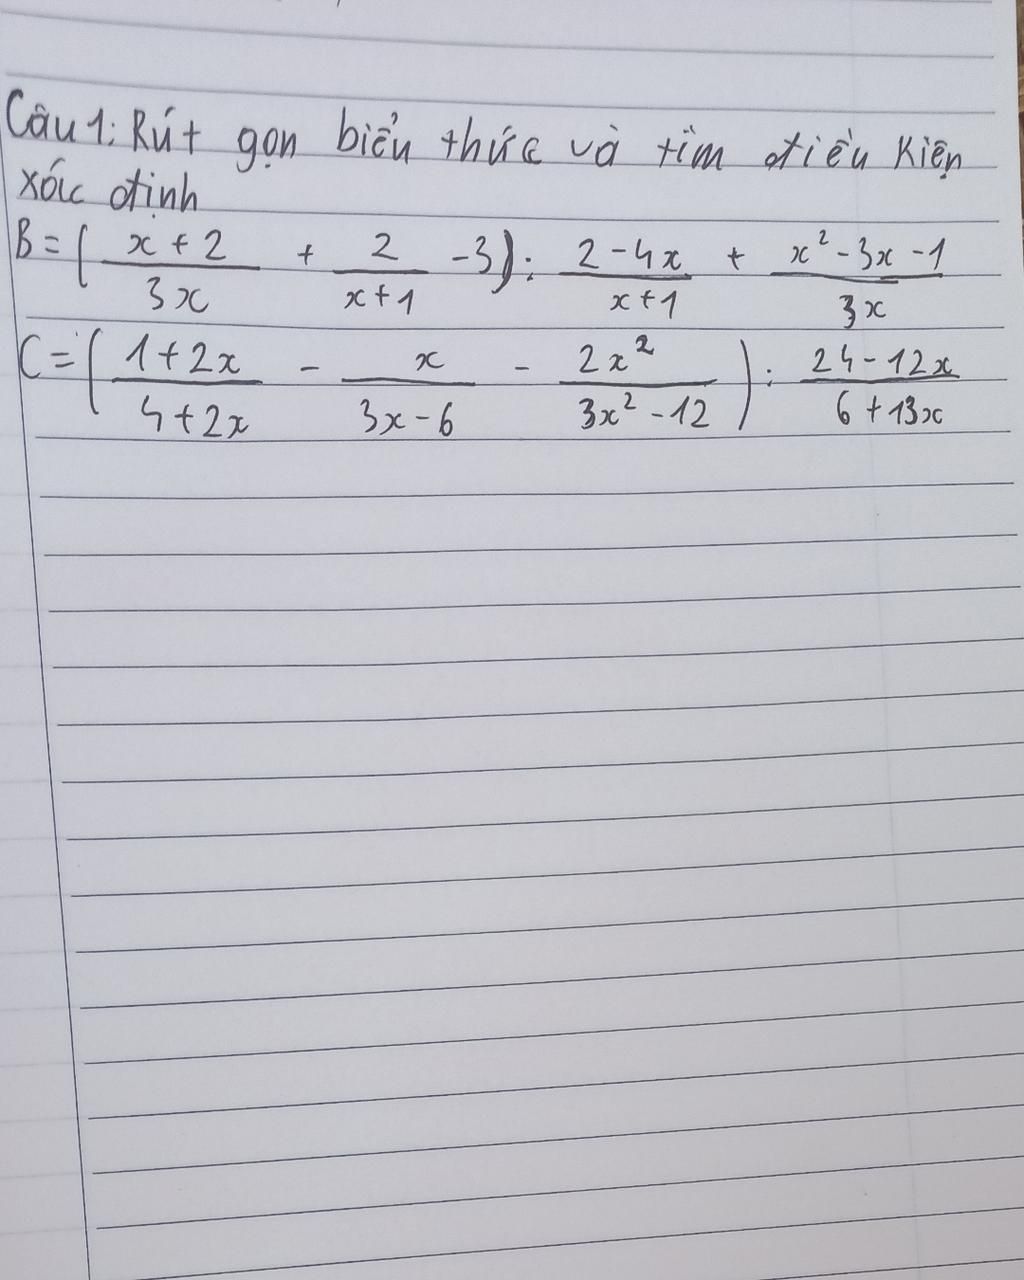 Câu 1: Rút gọn biểu thức và tìm điều kiện
xác định
B = ( \frac{x + 2}{3x} + \frac{2}{x + 1} - 3 ) : \frac{2 - 4x}{x + 1} + \frac{x^2 - 3x - 1}{3x}
C = ( \frac{1 + 2x}{4 + 2x} - \frac{x}{3x - 6} - \frac{2x^2}{3x^2 - 12} ) : \frac{24 - 12x}{6 + 13x}